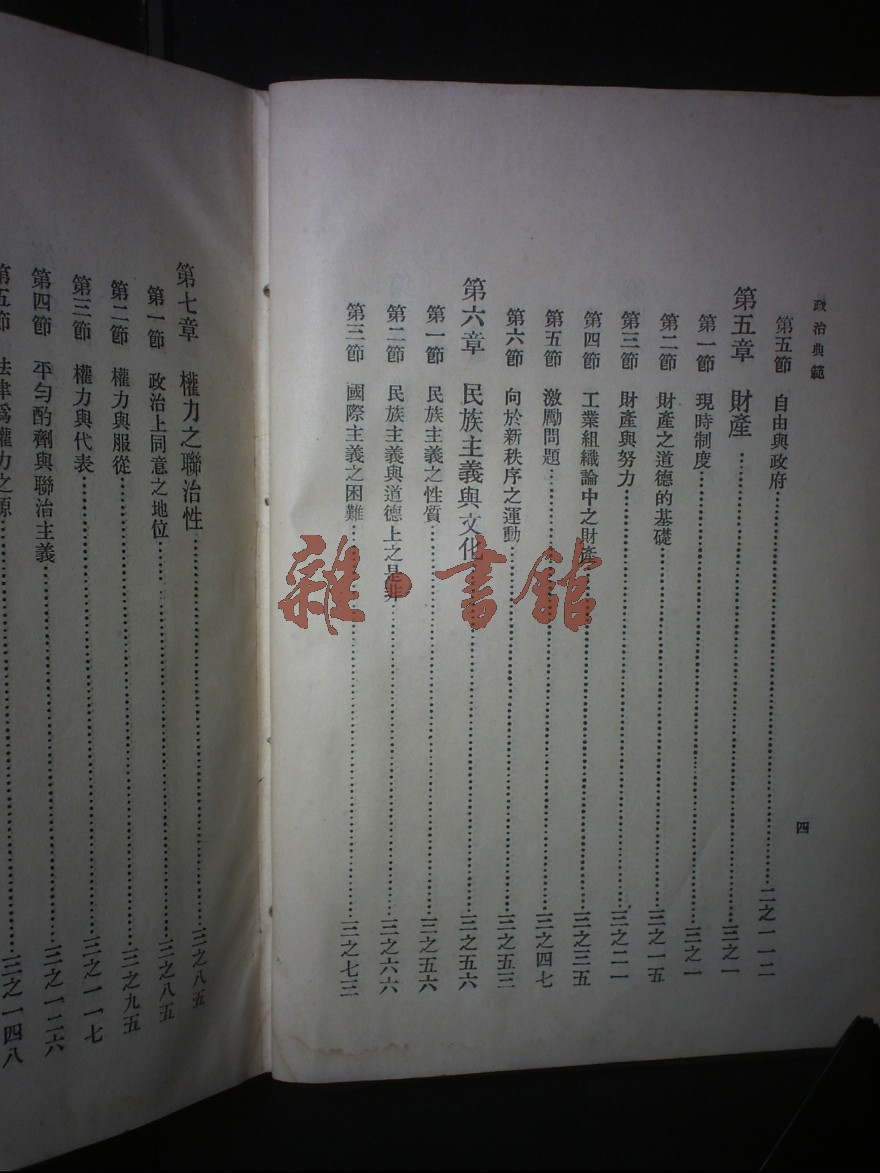 政治典範
第五節 自由與政府……二之一一二
第五章 財產……三之一
第一節 現時制度……三之一
第二節 財產之道德的基礎……三之一五
第三節 財產與努力……三之二一
第四節 工業組織論中之財產……三之三五
第五節 激勵問題……三之四七
第六節 向於新秩序之運動……三之五三
第六章 民族主義與文化……三之五六
第一節 民族主義之性質……三之五六
第二節 民族主義與道德上之是非……三之六六
第三節 國際主義之困難……三之七三
四
第七章 權力之聯治性……三之八五
第一節 政治上同意之地位……三之八五
第二節 權力與服從……三之九五
第三節 權力與代表……三之一一七
第四節 平勻酌劑與聯治主義……三之一二六
第五節 法律爲權力之源……三之一四八
雜·書館